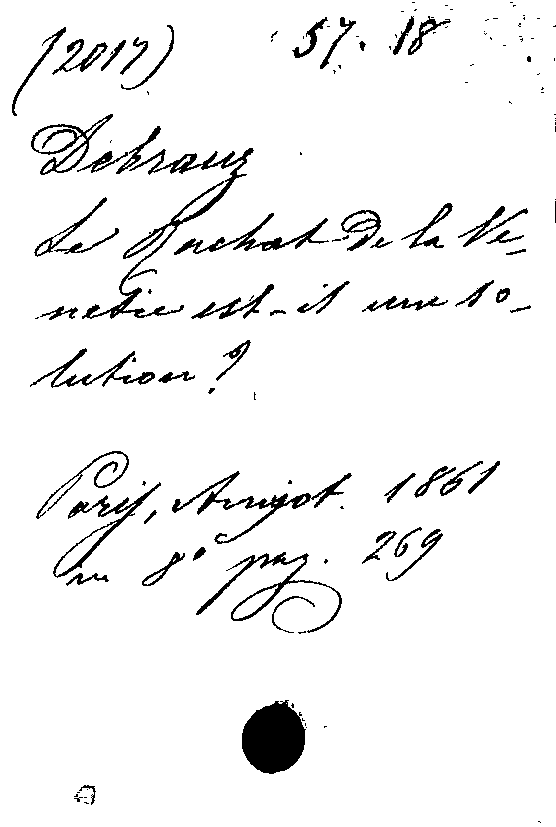 (2017) 57. 18
Debrauz
Le Rachat de la Vé-
netie est-il une so-
lution?
Paris, Amyot. 1861
in 8° pag. 269